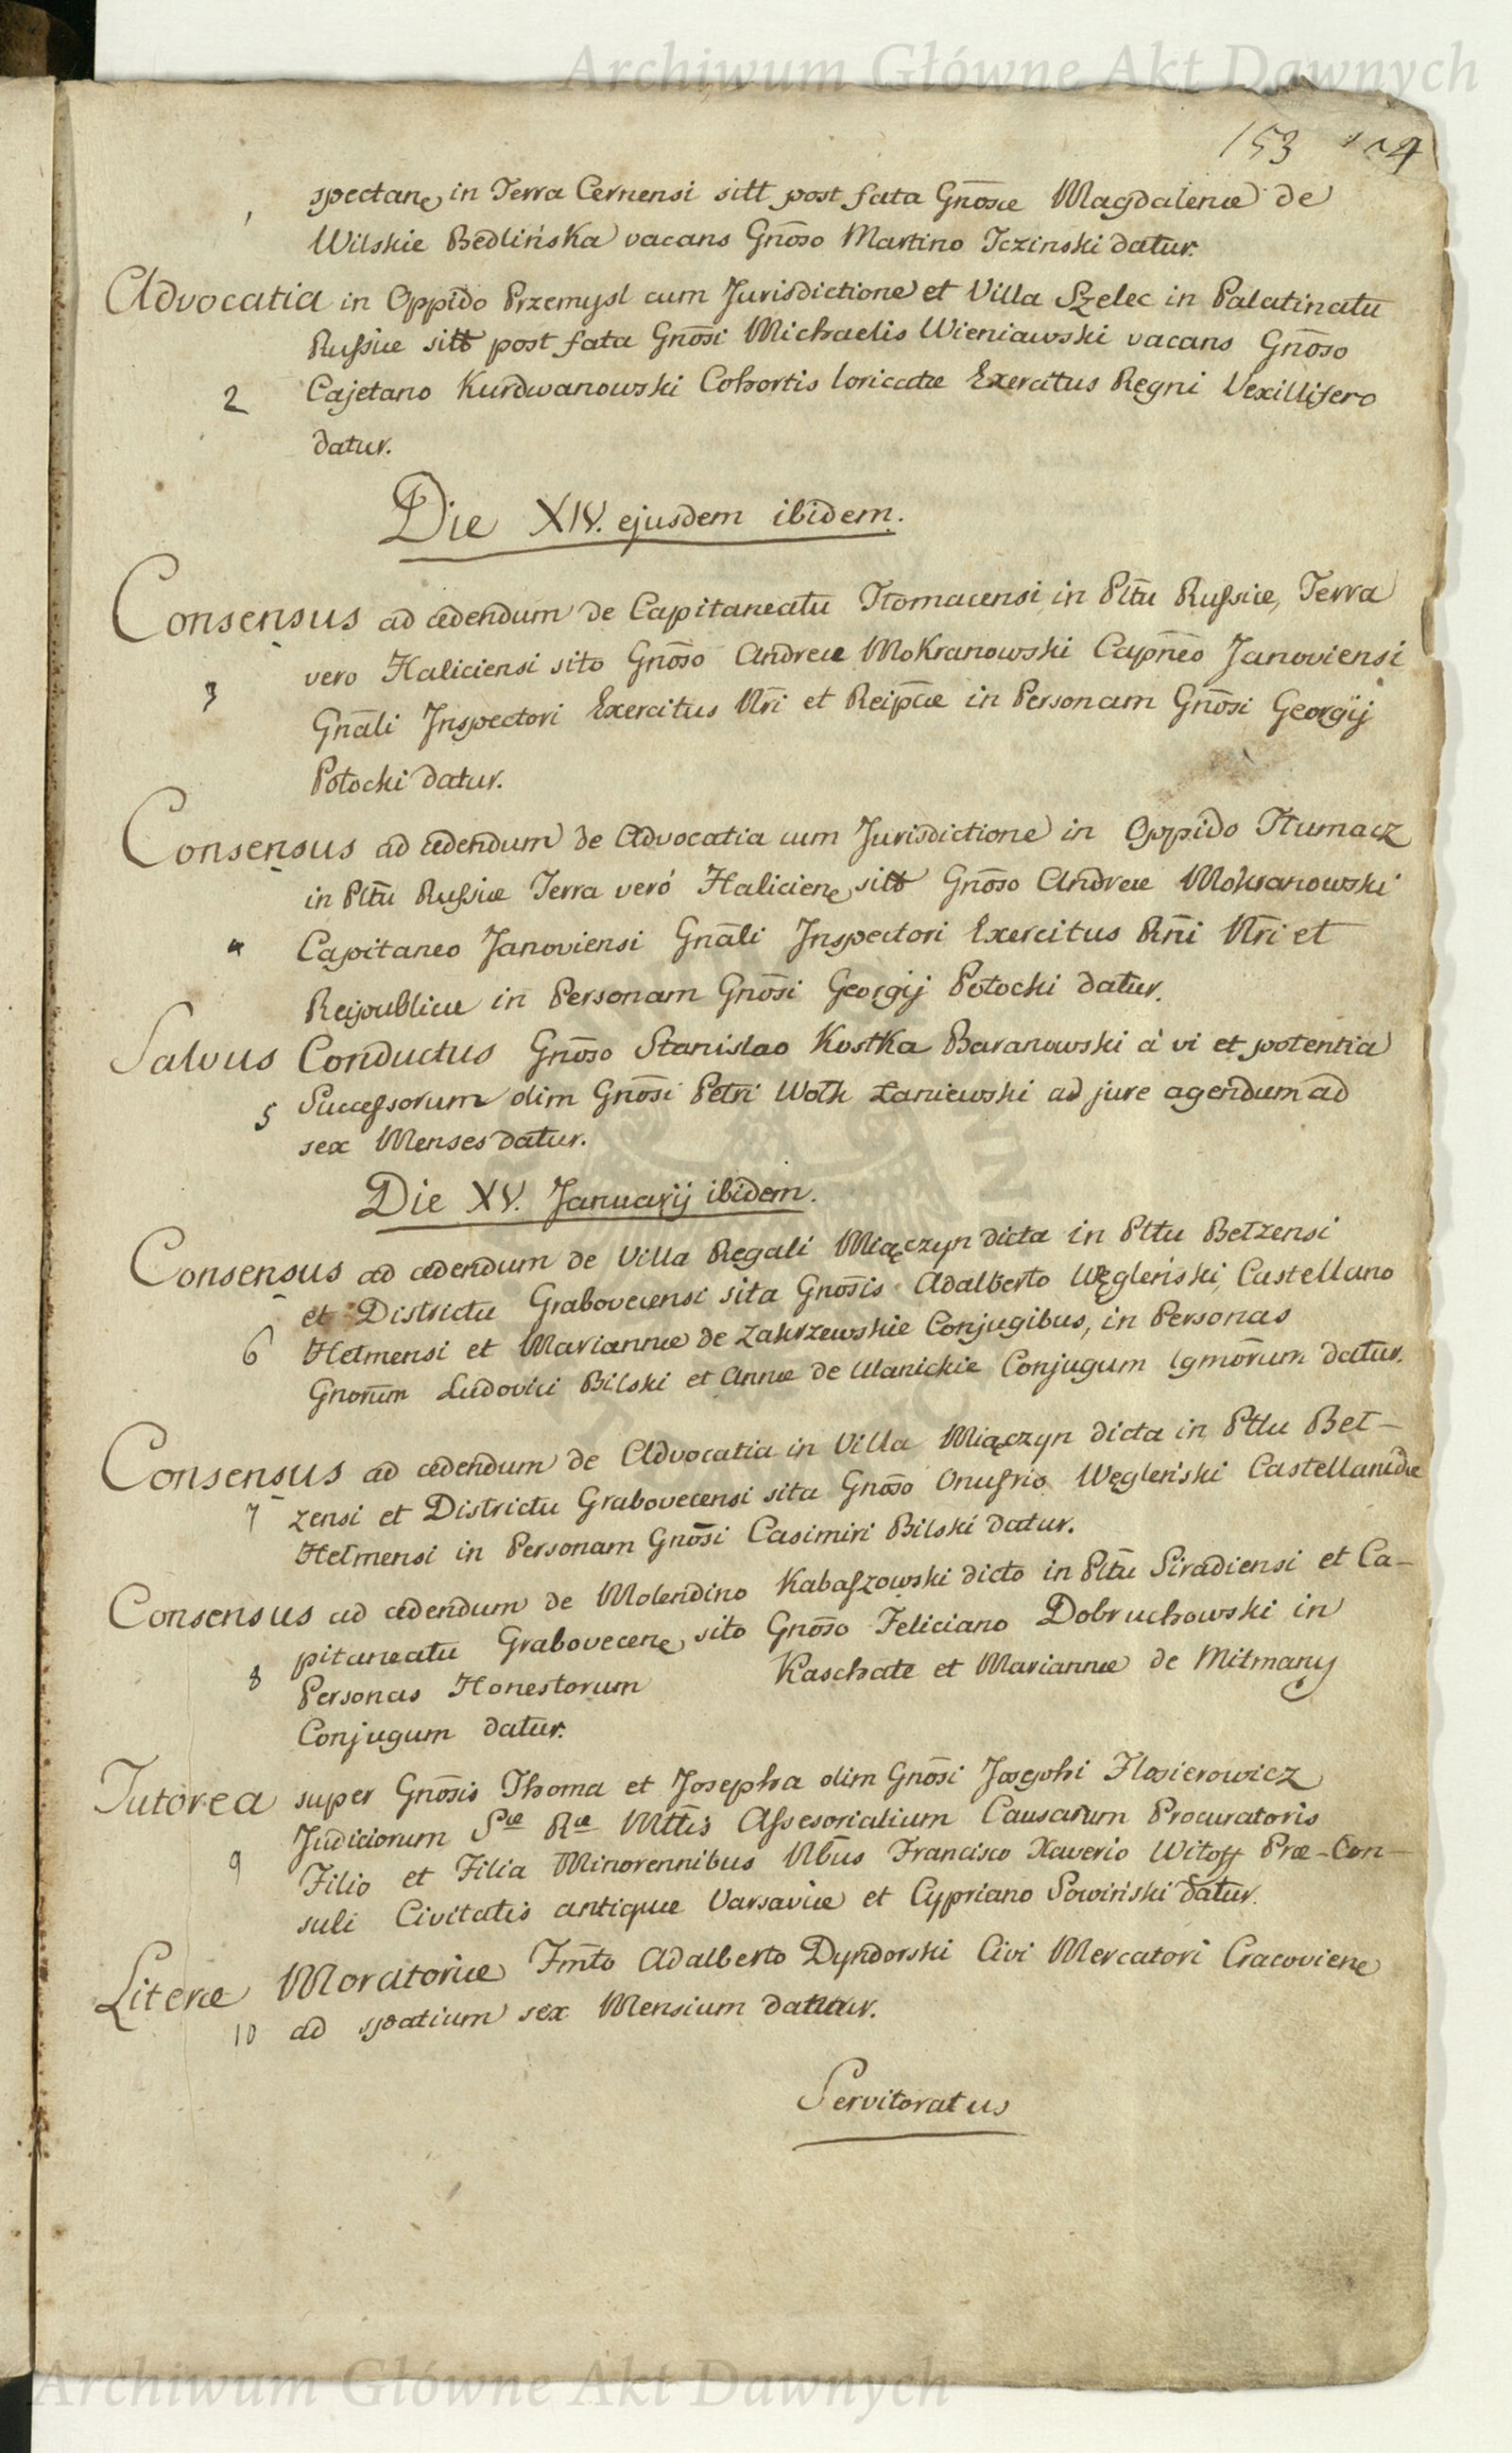 Archiwum Główne Akt Dawnych
153
spectane in Terra Cernensi sitt post fata Gnōsæ Magdalenæ de
1
Wilskie Bedlińska vacans Gnōso Martino Jczinski datur.
Advocatia in Oppido Przemysl cum Jurisdictione et Villa Szelec in Palatinatu
Rußiæ sitt post fata Gnōsi Michaelis Wieniawski vacans Gnōso
2 Cajetano Kurdwanowski Cohortis loricatæ Exercitus Regni Vexillifero
datur.
Die XIV. ejusdem ibidem.
Consensus ad cedendum de Capitaneatu Tłomacensi in Pltū Rußiæ, Terra
vero Haliciensi sito Gnōso Andreæ Mokranowski Capnēo Janoviensi
3 Gnāli Inspectori Exercitus Nri et Reipcæ in Personam Gnōsi Georgij
Potocki datur.
Consensus ad cedendum de Advocatia cum Jurisdictione in Oppido Tłumacz
in Pltū Rußiæ Terra veró Haliciene sitt Gnōso Andreæ Mokranowski
4 Capitaneo Janoviensi Gnāli Inspectori Exercitus Rni Nri et
Reipublicæ in Personam Gnōsi Georgij Potocki datur.
Salvus Conductus Gnōso Stanislao Kostka Baranowski à vi et potentia
5 Succeßorum olim Gnōsi Petri Wołk Łaniewski ad jure agendum ad
sex Menses datur.
Die XV. Januarij ibidem.
Consensus ad cedendum de Villa Regali Miączyn dicta in Pttu Bełzensi
et Districtu Grabovecensi sita Gnōsis Adalberto Węgleński, Castellano
6 Hełmensi et Mariannæ de Zakrzewskie Conjugibus, in Personas
Gnorūm Ludovici Bilski et Annæ de Ulanickie Conjugum Igmōrum datur.
Consensus ad cedendum de Advocatia in Villa Miączyn dicta in Pttu Beł-
7 zensi et Districtu Grabovecensi sita Gnōso Onufrio Węgleński Castellanidæ
Hełmensi in Personam Gnōsi Casimiri Bilski datur.
Consensus ad cedendum de Molendino Kabaßzowski dicto in Pltū Siradiensi et Ca-
pitaneatu Grabovecene sito Gnōso Feliciano Dobruchowski in
8 Personas Honestorum Kaschate et Mariannæ de Mitmany
Conjugum datur.
Tutorea super Gnōsis Thoma et Josepha olim Gnōsi Josephi Flosierowicz
Judiciorum Sæ Ræ Mttis Aßesorialium Causarum Procuratoris
9 Filio et Filia Minorennibus Nbus Francisco Xaverio Witoff Præ-Con-
suli Civitatis antiquæ Varsaviæ et Cypriano Sowiński datur.
Literæ Moratoriæ Fmto Adalberto Dyndorski Civi Mercatori Cracoviene
10 ad spatium sex Mensium datur.
Servitoratus
Archiwum Główne Akt Dawnych